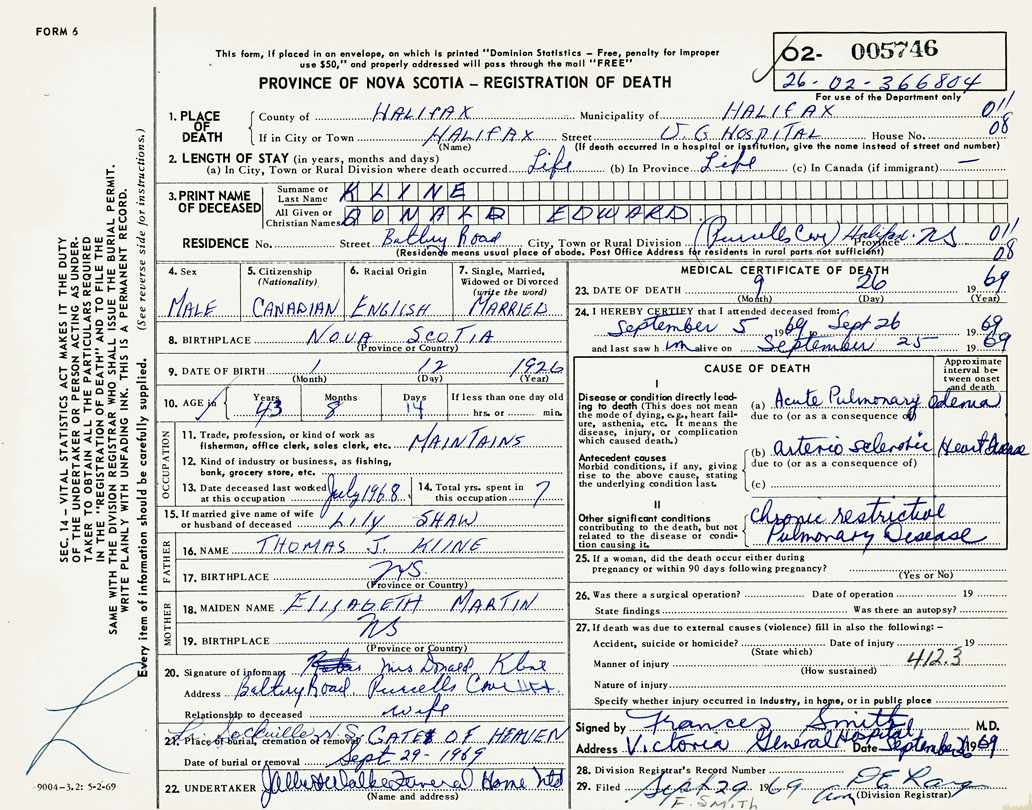 FORM 6
This form, if placed in an envelope, on which is printed "Dominion Statistics – Free, penalty for improper
use $50," and properly addressed will pass through the mail "FREE"
PROVINCE OF NOVA SCOTIA – REGISTRATION OF DEATH
02- 005746
26-02-366804
For use of the Department only
1. PLACE OF DEATH
County of HALIFAX Municipality of HALIFAX 011
If in City or Town HALIFAX Street V G HOSPITAL House No. 08
(Name) (If death occurred in a hospital or institution, give the name instead of street and number)
2. LENGTH OF STAY (in years, months and days)
(a) In City, Town or Rural Division where death occurred Life (b) In Province Life (c) In Canada (if immigrant) —
3. PRINT NAME OF DECEASED
Surname or Last Name KLINE
All Given or Christian Names DONALD EDWARD
RESIDENCE No. Street Battery Road City, Town or Rural Division (Purcells Cove) Halifax Province NS 011
(Residence means usual place of abode. Post Office Address for residents in rural parts not sufficient) 08
4. Sex MALE
5. Citizenship (Nationality) CANADIAN
6. Racial Origin ENGLISH
7. Single, Married, Widowed or Divorced (write the word) MARRIED
8. BIRTHPLACE NOVA SCOTIA
(Province or Country)
9. DATE OF BIRTH 1 12 1926
(Month) (Day) (Year)
10. AGE in Years 43 Months 8 Days 14 If less than one day old hrs. or min.
OCCUPATION
11. Trade, profession, or kind of work as
fisherman, office clerk, sales clerk, etc. MAINTAINS
12. Kind of industry or business, as fishing,
bank, grocery store, etc.
13. Date deceased last worked at this occupation July 1968
14. Total yrs. spent in this occupation 7
15. If married give name of wife
or husband of deceased Lily SHAW
FATHER
16. NAME THOMAS J. KLINE
17. BIRTHPLACE NS.
(Province or Country)
MOTHER
18. MAIDEN NAME ELISABETH MARTIN
19. BIRTHPLACE NS
(Province or Country)
20. Signature of informant Mrs Donald Kline
Address Battery Road, Purcells Cove HFX.
Relationship to deceased wife
Sackville N.S.
21. Place of burial, cremation or removal GATE OF HEAVEN
Date of burial or removal Sept-29-1969
22. UNDERTAKER Funeral Home
(Name and address)
MEDICAL CERTIFICATE OF DEATH
23. DATE OF DEATH 9 26 1969
(Month) (Day) (Year)
24. I HEREBY CERTIFY that I attended deceased from:
September 5 1969 to Sept 26 1969
and last saw him alive on September 25 1969
CAUSE OF DEATH
Approximate interval between onset and death
I
Disease or condition directly leading to death (This does not mean
the mode of dying, e.g., heart failure, asthenia, etc. It means the
disease, injury, or complication
which caused death.)
(a) Acute Pulmonary edema
due to (or as a consequence of)
Antecedent causes
Morbid conditions, if any, giving
rise to the above cause, stating
the underlying condition last.
(b) arterio sclerotic Heart disease
due to (or as a consequence of)
(c)
II
Other significant conditions
contributing to the death, but not
related to the disease or condition causing it.
chronic restrictive
Pulmonary Disease
25. If a woman, did the death occur either during
pregnancy or within 90 days following pregnancy?
(Yes or No)
26. Was there a surgical operation? Date of operation 19
State findings Was there an autopsy?
27. If death was due to external causes (violence) fill in also the following:–
Accident, suicide or homicide? Date of injury 19
(State which)
Manner of injury 412.3
(How sustained)
Nature of injury
Specify whether injury occurred in Industry, in home, or in public place
Signed by Frances Smith M.D.
Address Victoria General Hospital Date September 26 1969
28. Division Registrar's Record Number
29. Filed Sept 29 1969
(Division Registrar)
F. SMITH
SEC. 14 – VITAL STATISTICS ACT MAKES IT THE DUTY
OF THE UNDERTAKER OR PERSON ACTING AS UNDER-
TAKER TO OBTAIN ALL THE PARTICULARS REQUIRED
IN THE "REGISTRATION OF DEATH" AND TO FILE THE
SAME WITH THE DIVISION REGISTRAR WHO SHALL ISSUE THE BURIAL PERMIT.
WRITE PLAINLY WITH UNFADING INK. THIS IS A PERMANENT RECORD.
Every item of information should be carefully supplied. (See reverse side for instructions.)
9004-3.2: 5-2-69